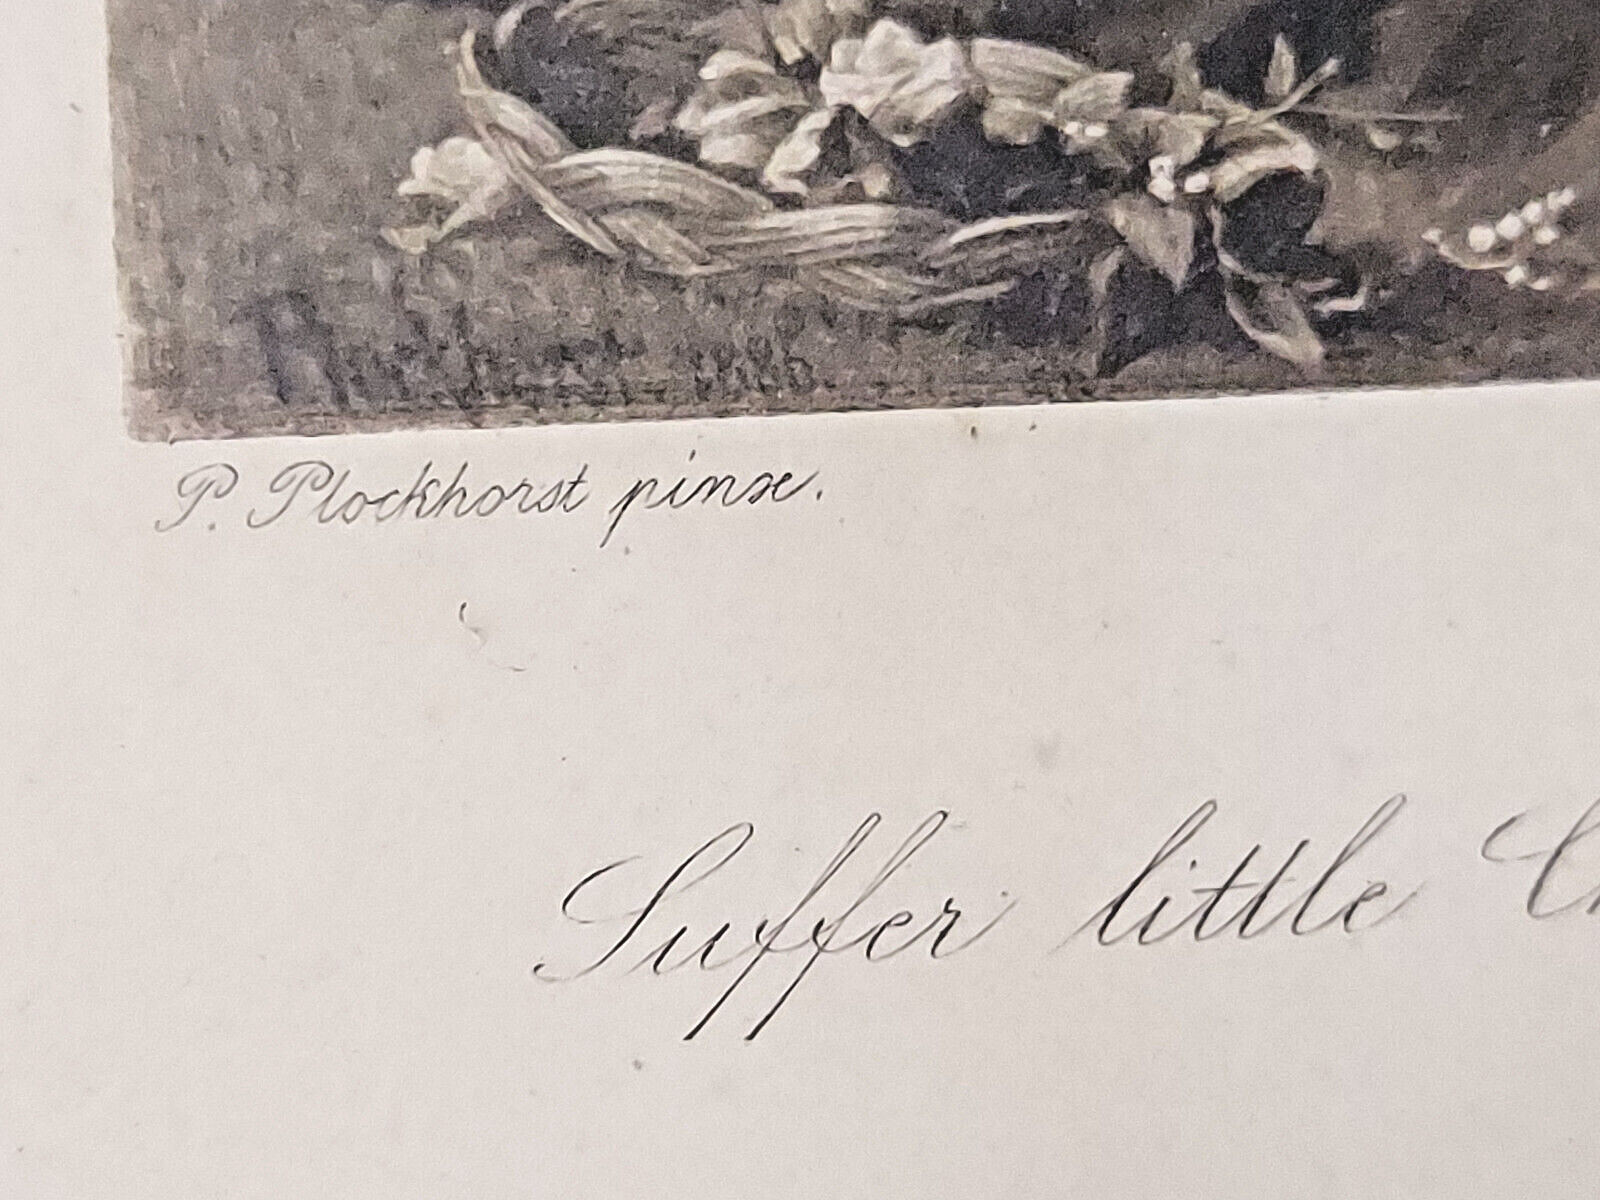 P. Plockhorst pinx.
Suffer little